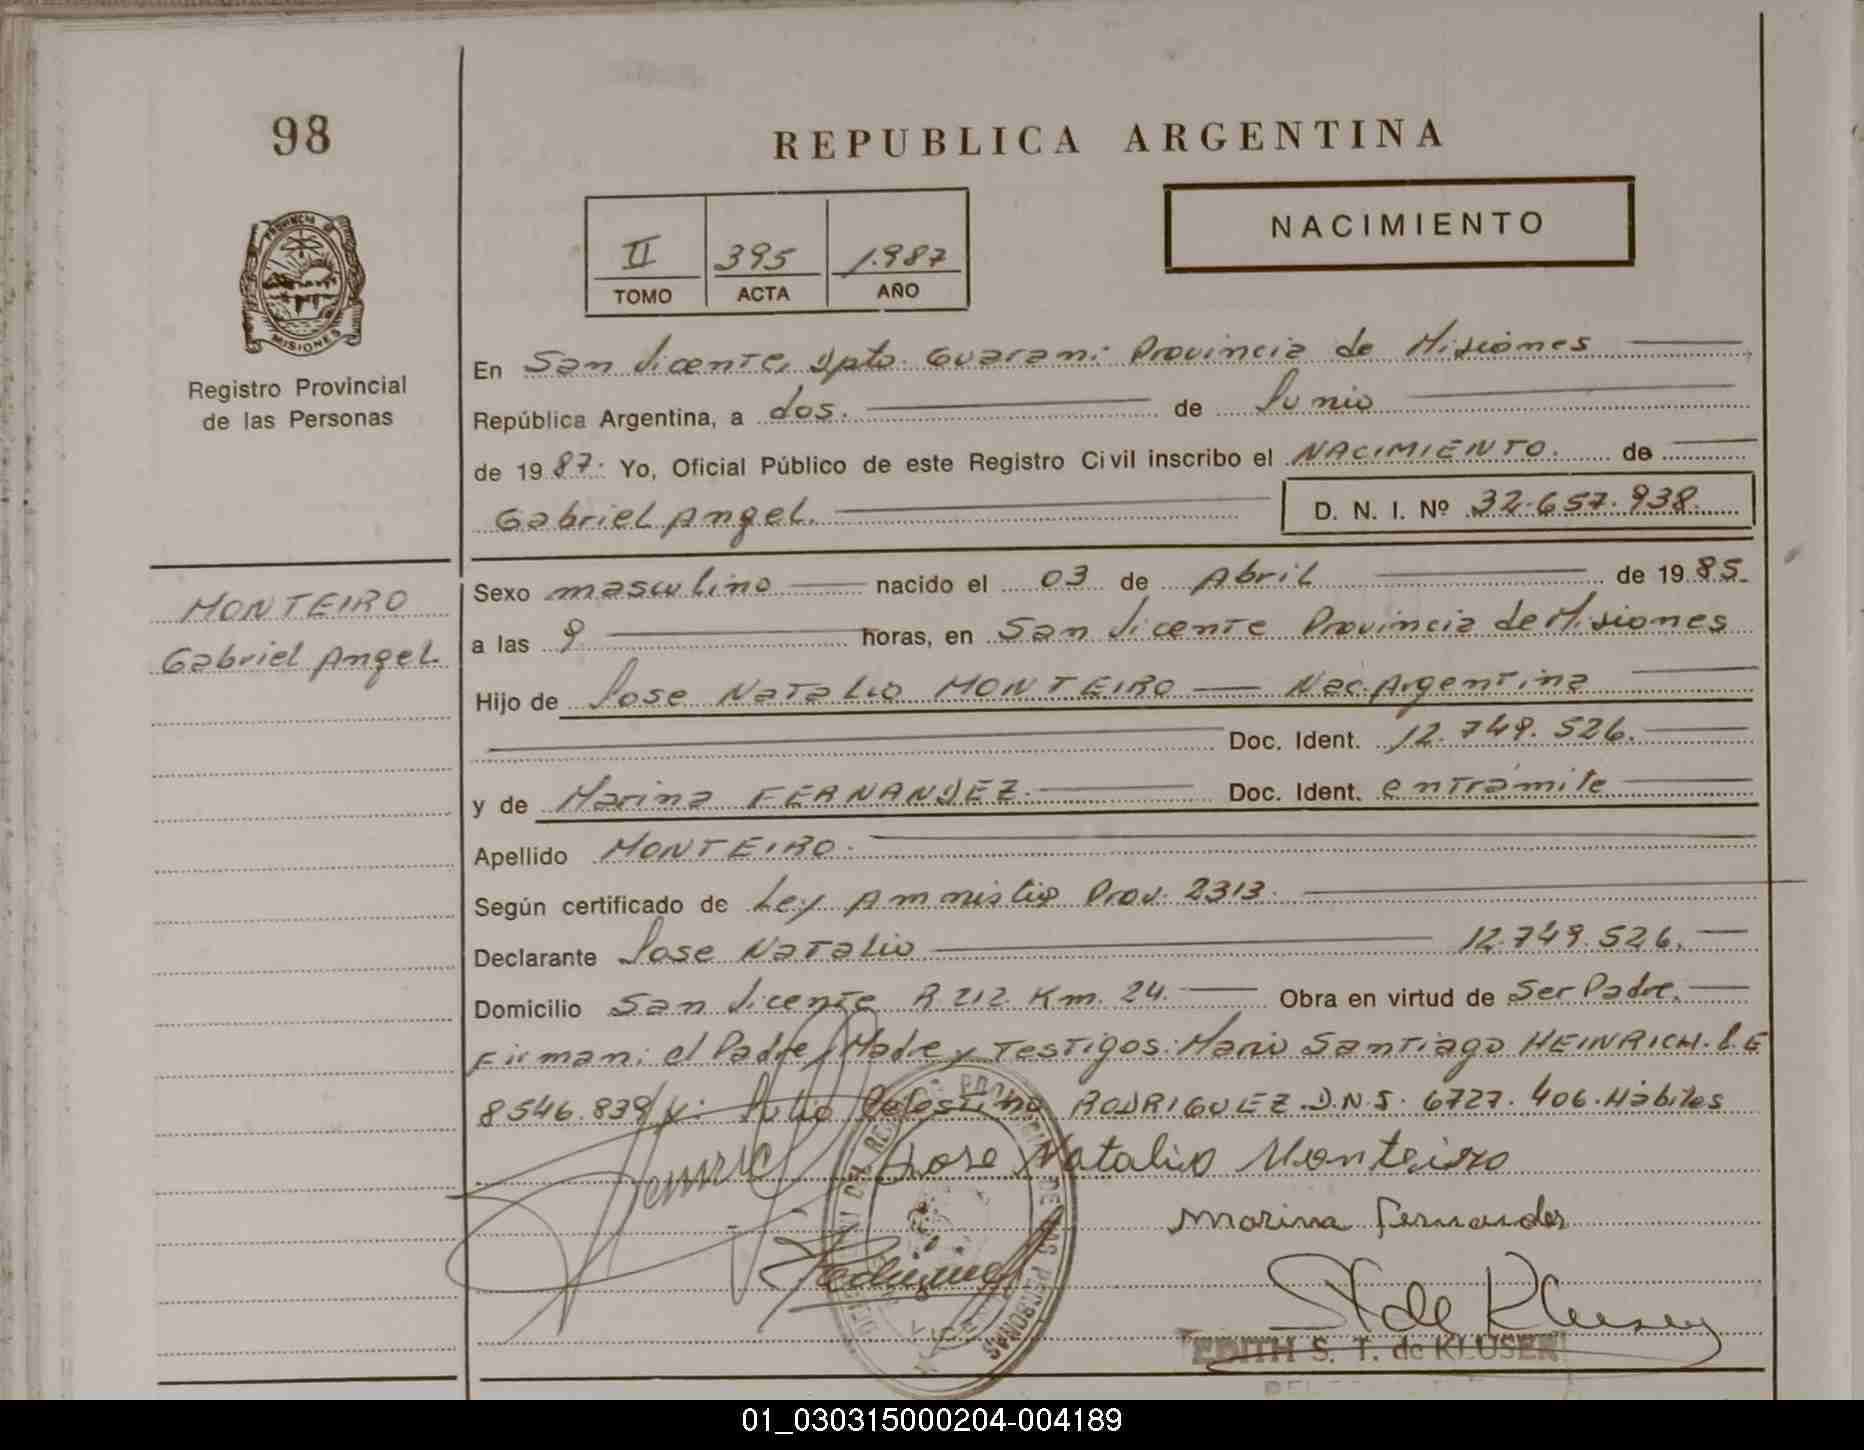 98
REPUBLICA ARGENTINA
II 395 1.987
TOMO ACTA AÑO
NACIMIENTO
PROVINCIA DE
MISIONES
Registro Provincial
de las Personas
En San Vicente, Dpto. Guarani Provincia de Misiones
República Argentina, a dos. de Junio
de 19 87. Yo, Oficial Público de este Registro Civil inscribo el NACIMIENTO. de
Gabriel Angel. D. N. I. Nº 32.657.938.
MONTEIRO
Gabriel Angel
Sexo masculino nacido el 03 de Abril de 19 85.
a las 9 horas, en San Vicente Provincia de Misiones
Hijo de Jose Natalio MONTEIRO Nac. Argentina
Doc. Ident. 12.749.526.
y de Marina FERNANDEZ. Doc. Ident. en tramite
Apellido MONTEIRO.
Según certificado de Ley Amnistia Prov. 2313.
Declarante Jose Natalio 12.749.526.
Domicilio San Vicente R.212 Km. 24. Obra en virtud de Ser Padre.
Firman: el Padre, Madre y Testigos: Mario Santiago HEINRICH. L.E
8546.839/y: Julio Celestino RODRIGUEZ. D.N.I. 6727.406. Habiles
Jose Natalio Monteiro
Marina Fernandez
Rodriguez
St de Kluser
EDITH S. T. de KLUSER
01_030315000204-004189